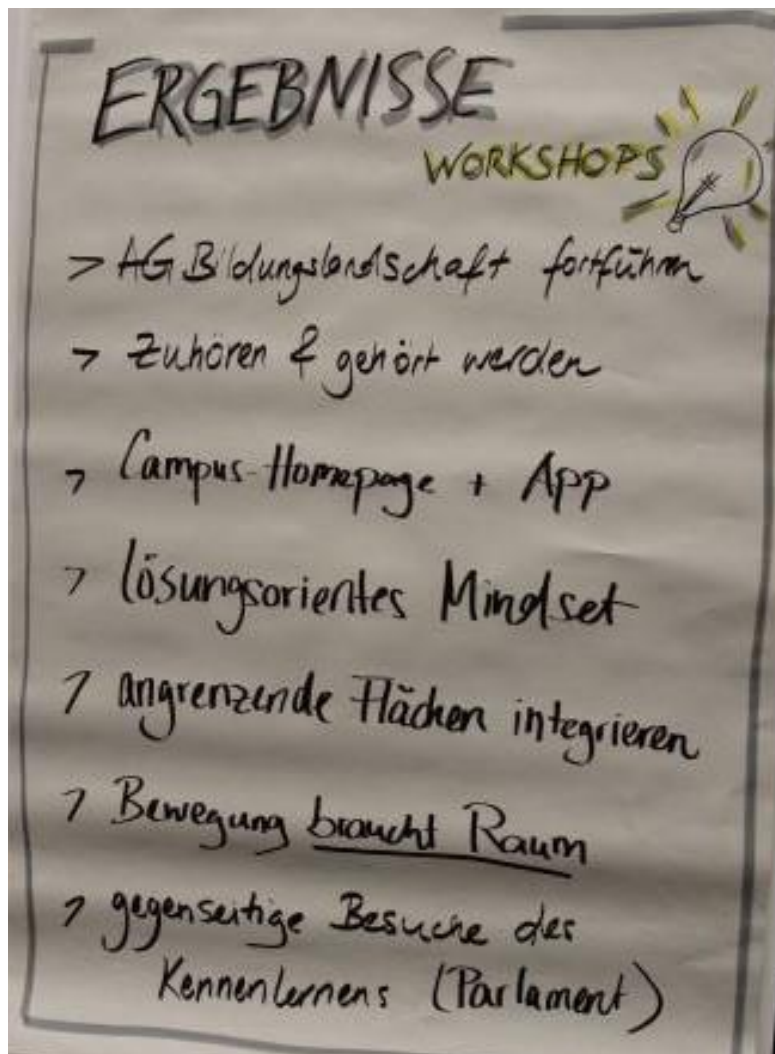 ERGEBNISSE
WORKSHOPS
> AG Bildungslandschaft fortführen
> Zuhören & gehört werden
> Campus-Homepage + App
> lösungsorientes Mindset
> angrenzende Flächen integrieren
> Bewegung braucht Raum
> gegenseitige Besuche des
Kennenlernens (Parlament)